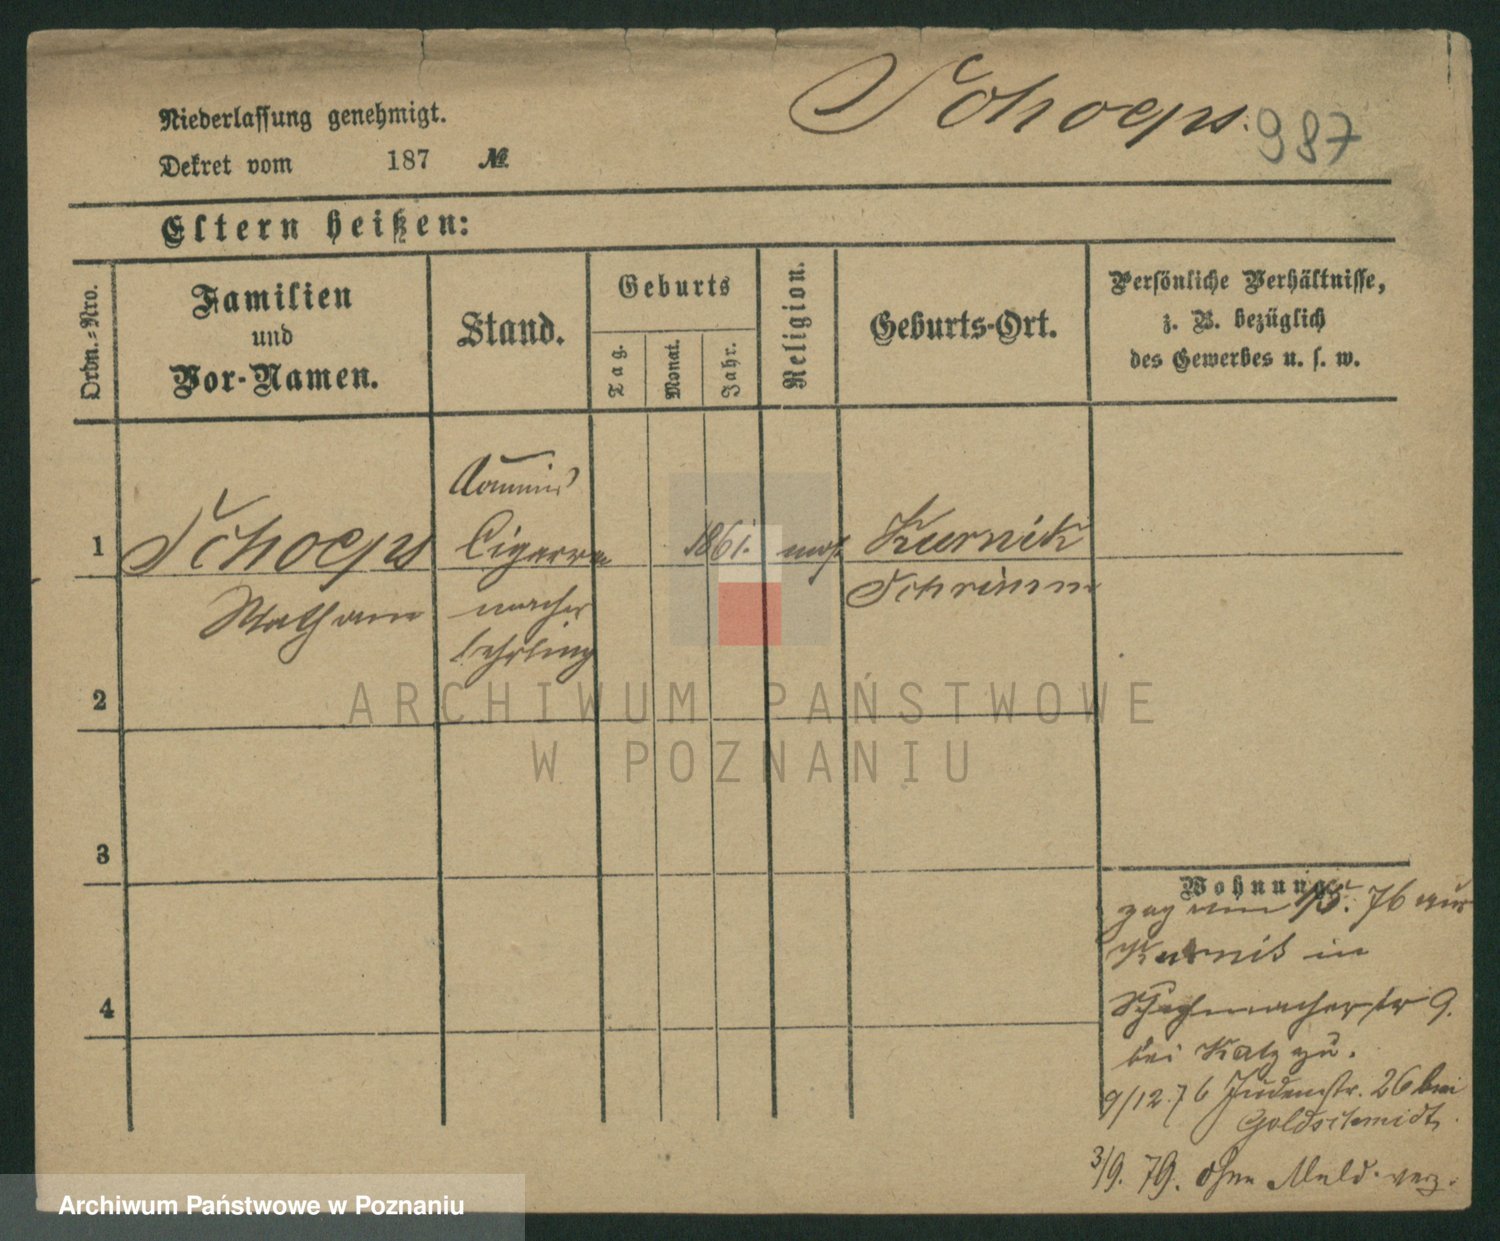 Schoeps.
987
Niederlassung genehmigt.
Dekret vom 187 №
Eltern heißen:
Ordn.-Nro.
Familien
und
Vor-Namen.
Stand.
Geburts
Tag.
Monat.
Jahr.
Religion.
Geburts-Ort.
Persönliche Verhältnisse,
z. B. bezüglich
des Gewerbes u. s. w.
Commis
1 Schoeps Cigarren 1861. mos. Kurnik
Nathan macher Schrimm
lehrling
2
ARCHIWUM PAŃSTWOWE
W POZNANIU
3
4
Wohnung
zog am 1/5. 76 aus
Kurnik in
Schuhmacherstr 9.
bei Katz zu.
9/12.76 Judenstr. 26 bei
Goldschmidt.
3/9. 79. ohne Meld. verz.
Archiwum Państwowe w Poznaniu